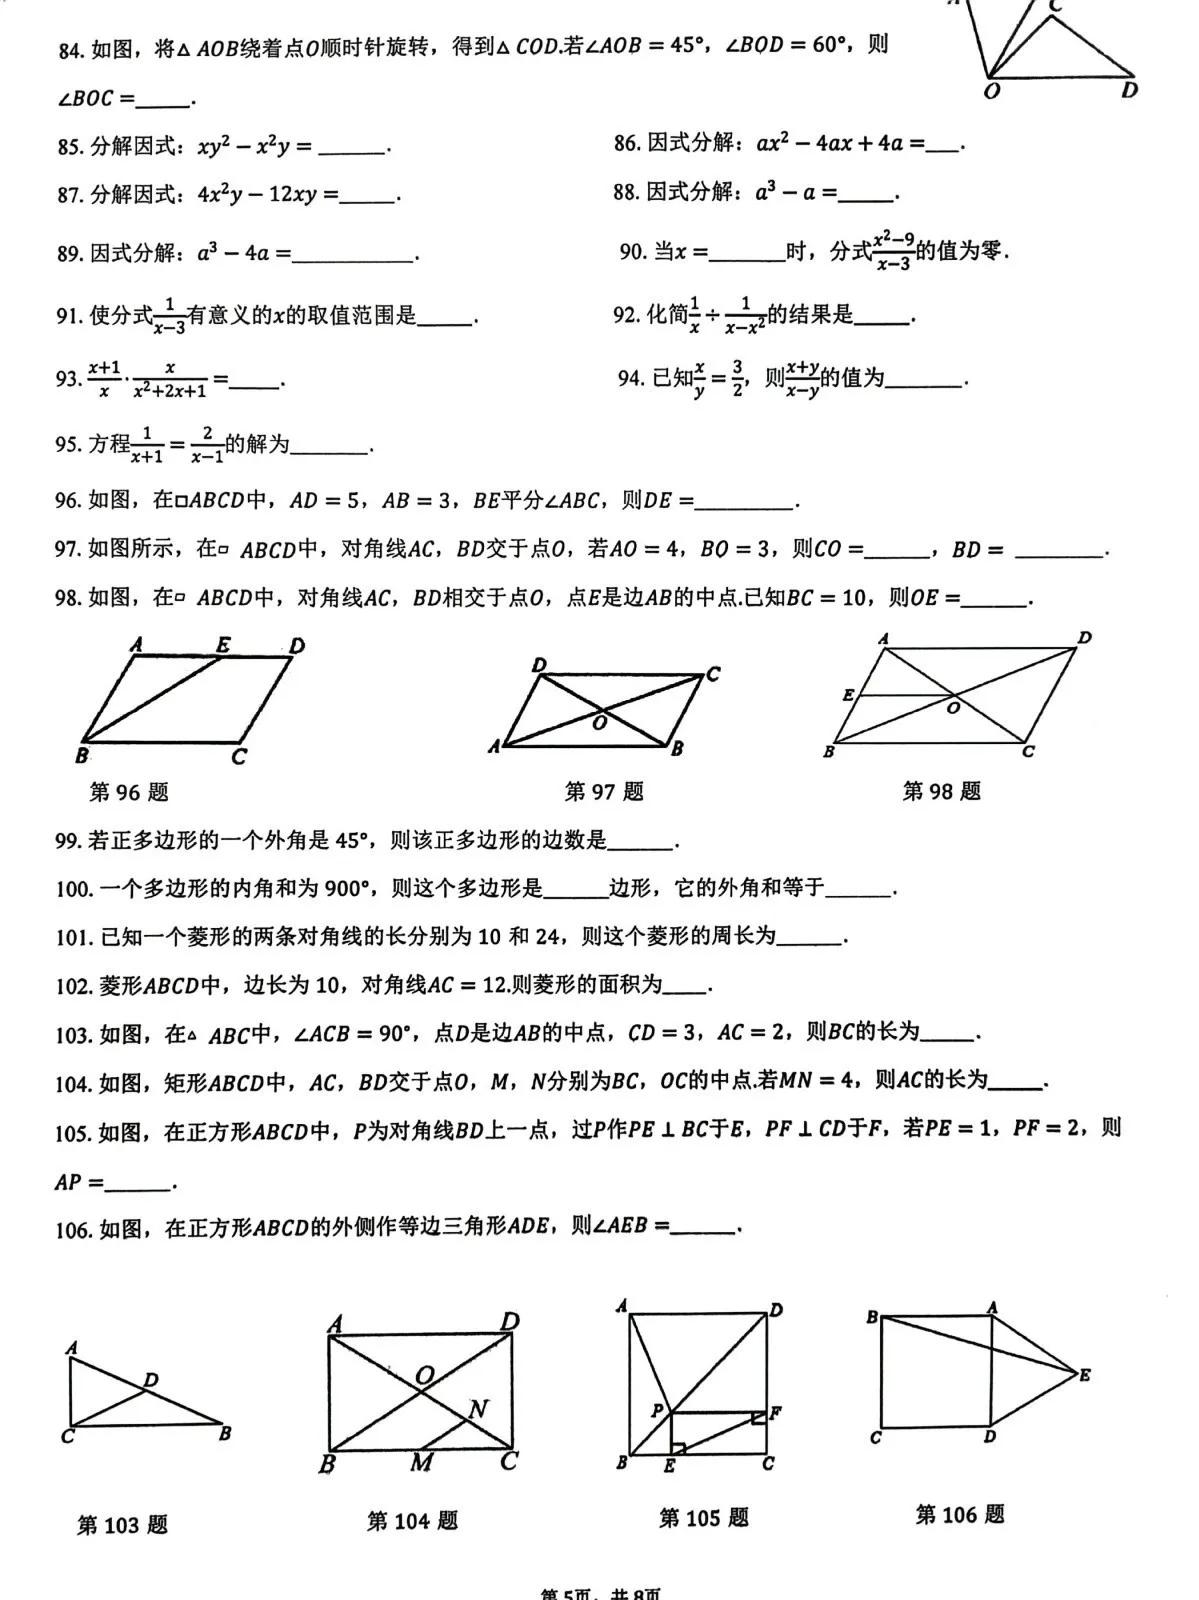 A
C
O
D
84. 如图，将△ AOB绕着点O顺时针旋转，得到△ COD.若∠AOB = 45°，∠BOD = 60°，则
∠BOC =_____.
85. 分解因式：xy² − x²y = ______.
86. 因式分解：ax² − 4ax + 4a =___.
87. 分解因式：4x²y − 12xy =_____.
88. 因式分解：a³ − a =_____.
89. 因式分解：a³ − 4a =___________.
90. 当x =_______时，分式(x²−9)/(x−3)的值为零.
91. 使分式1/(x−3)有意义的x的取值范围是_____.
92. 化简1/x ÷ 1/(x−x²)的结果是_____.
93. (x+1)/x · x/(x²+2x+1) =_____.
94. 已知x/y = 3/2，则(x+y)/(x−y)的值为_______.
95. 方程1/(x+1) = 2/(x−1)的解为_______.
96. 如图，在▱ABCD中，AD = 5，AB = 3，BE平分∠ABC，则DE =_________.
97. 如图所示，在▱ ABCD中，对角线AC，BD交于点O，若AO = 4，BO = 3，则CO =______，BD = ________.
98. 如图，在▱ ABCD中，对角线AC，BD相交于点O，点E是边AB的中点.已知BC = 10，则OE =______.
A E D
B C
D C
O
A B
A D
E O
B C
第 96 题
第 97 题
第 98 题
99. 若正多边形的一个外角是 45°，则该正多边形的边数是______.
100. 一个多边形的内角和为 900°，则这个多边形是______边形，它的外角和等于______.
101. 已知一个菱形的两条对角线的长分别为 10 和 24，则这个菱形的周长为______.
102. 菱形ABCD中，边长为 10，对角线AC = 12.则菱形的面积为____.
103. 如图，在△ ABC中，∠ACB = 90°，点D是边AB的中点，CD = 3，AC = 2，则BC的长为_____.
104. 如图，矩形ABCD中，AC，BD交于点O，M，N分别为BC，OC的中点.若MN = 4，则AC的长为_____.
105. 如图，在正方形ABCD中，P为对角线BD上一点，过P作PE ⊥ BC于E，PF ⊥ CD于F，若PE = 1，PF = 2，则
AP =______.
106. 如图，在正方形ABCD的外侧作等边三角形ADE，则∠AEB =______.
A
D
C B
A D
O
N
B M C
A D
P F
B E C
B A
E
C D
第 103 题
第 104 题
第 105 题
第 106 题
第 5页，共 8页